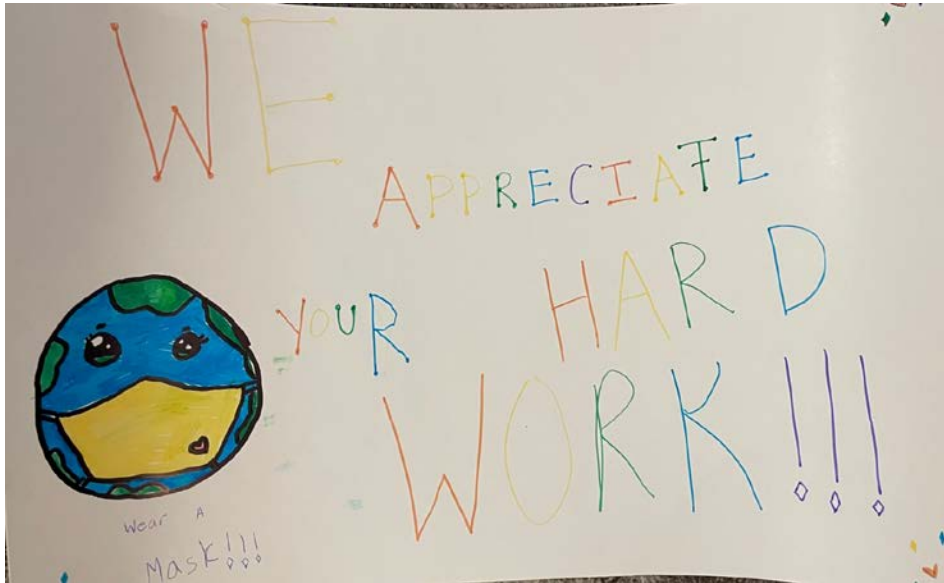 WE
APPRECIATE
YOUR HARD
WORK!!!
Wear A
Mask!!!